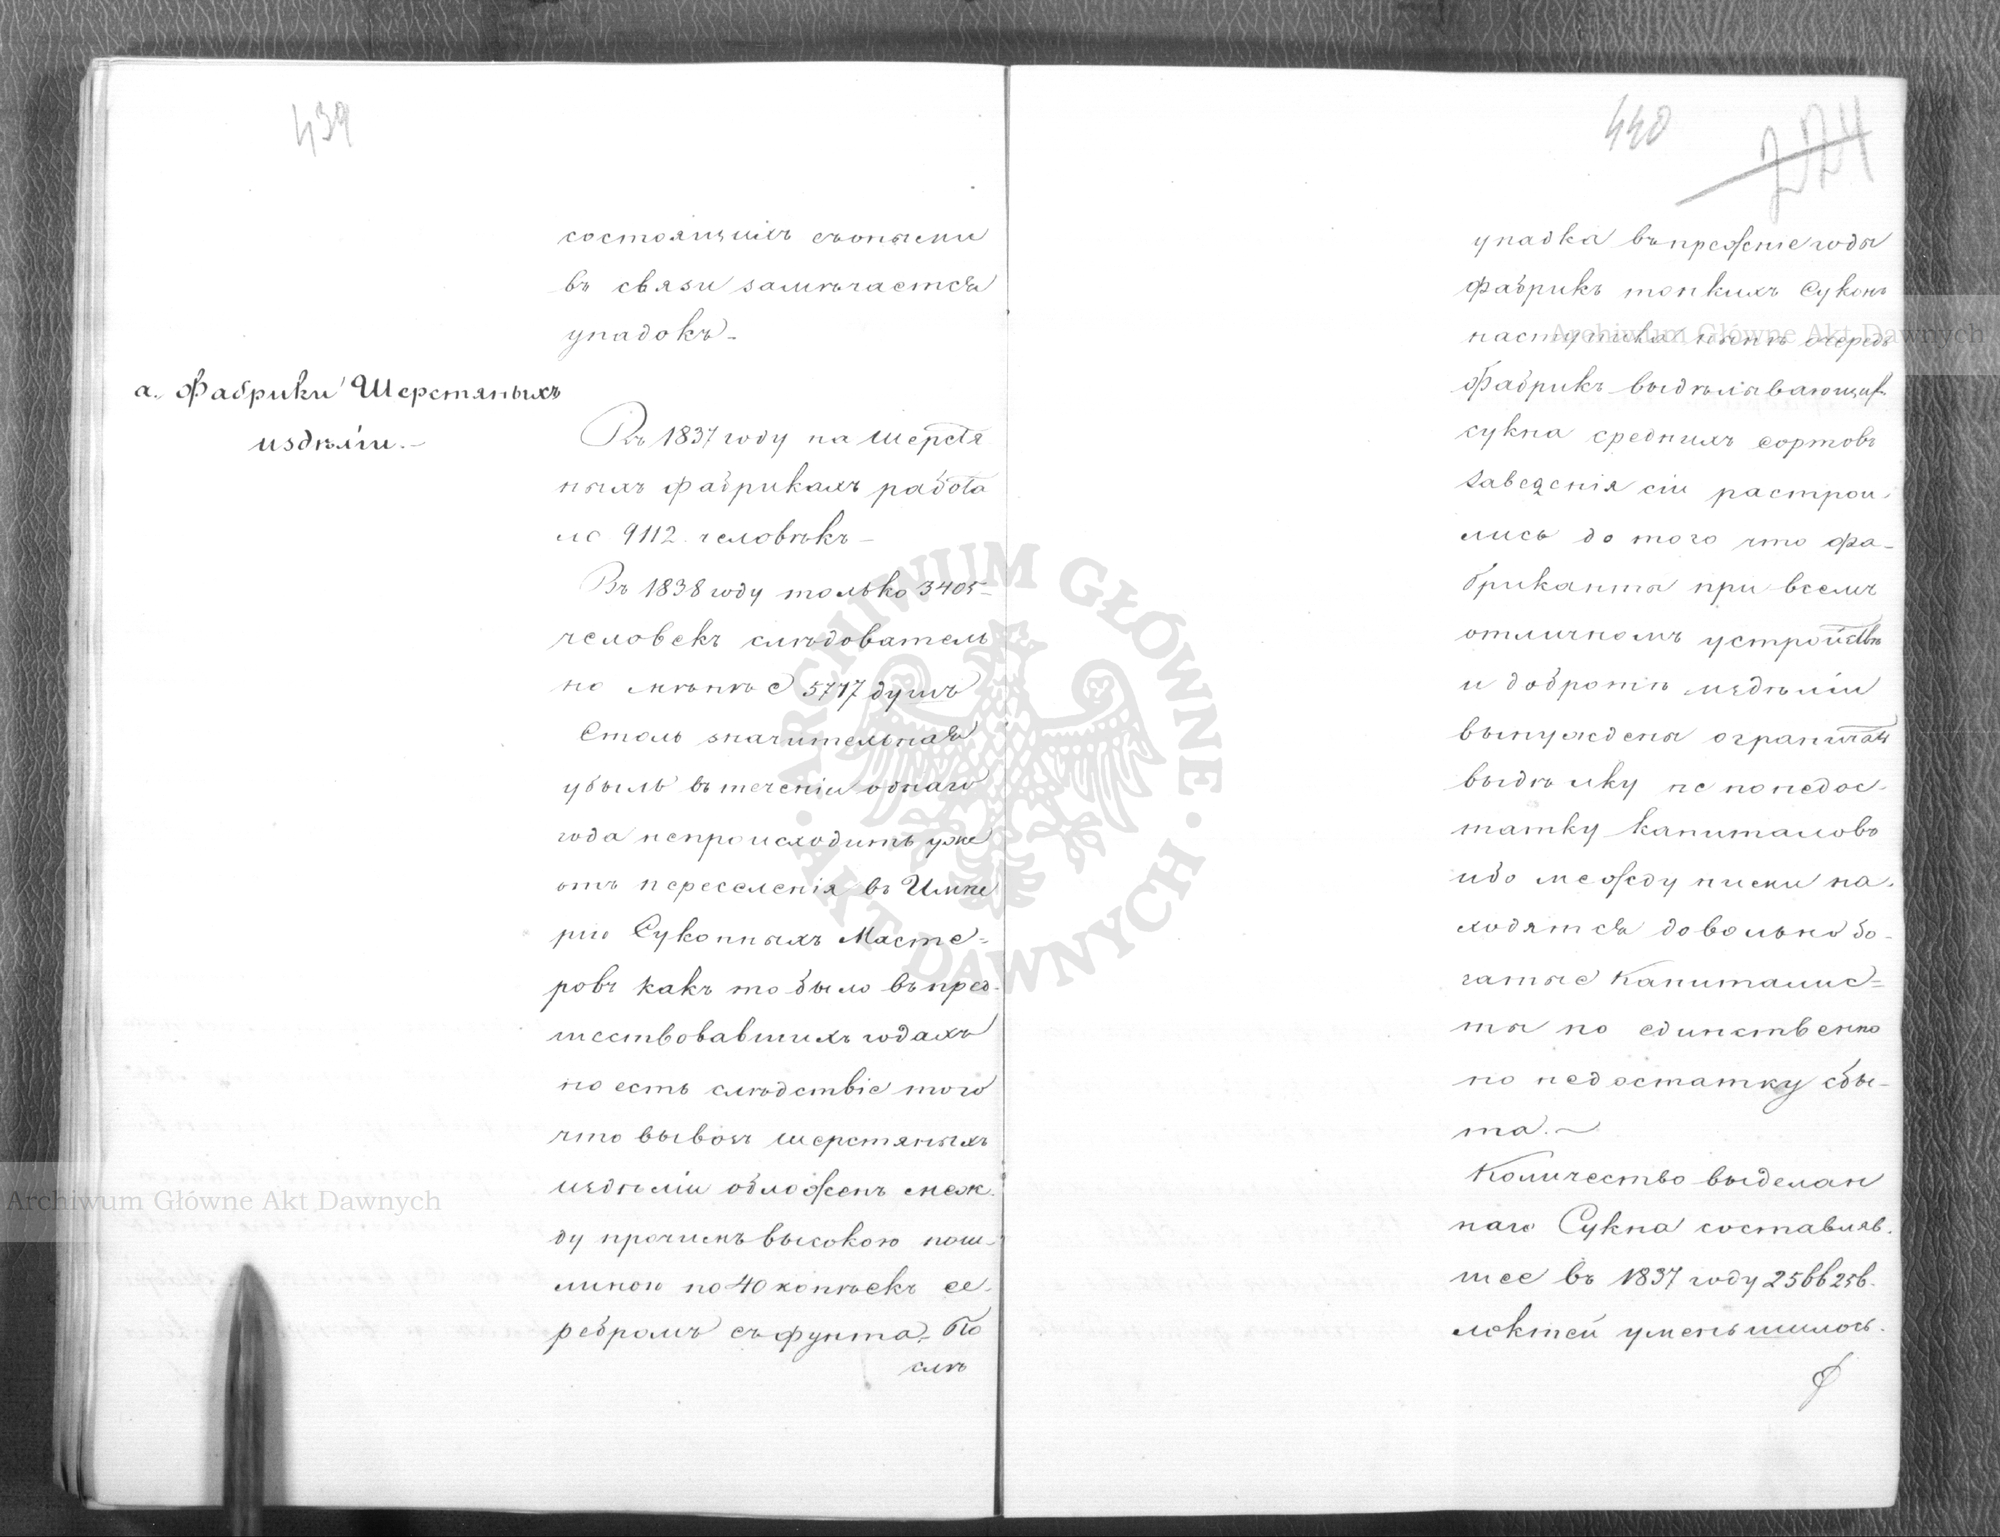 439
состоящихъ съ оными
въ связи замѣчается
упадокъ.
а. Фабрики Шерстяныхъ
издѣлiи.
Въ 1837 году на шерстя
ныхъ фабрикахъ работа
ло 9112 человѣкъ
Въ 1838 году только 3405
человекъ слѣдователь
но мѣнѣе 5717 душъ
Столь значительная
убыль въ теченiи однаго
года непроисходитъ уже
отъ переселенiя въ Импе
рiю Суконныхъ Масте=
ровъ какъ то было въ пред-
шествовавшихъ годахъ
но есть слѣдствiе того
что вывозъ шерстяныхъ
издѣлiи обложенъ меж-
ду прочимъ высокою пош-
линою по 40 копѣекъ се-
ребромъ съ фунта. По
слѣ
440
224
упадка въ прежнiе годы
фабрикъ тонкихъ Суконъ
наступила нынѣ очередь
фабрикъ выдѣлывающихъ
сукна среднихъ сортовъ
Заведенiя сiи растрои-
лись до того что фа-
бриканты при всемъ
отличномъ устройствѣ
и добротѣ издѣлiи
вынуждены ограничать
выдѣлку не по недос-
татку капиталовъ
ибо между ними на-
ходятся довольно бо-
гатые Капиталис=
ты но единственно
по недостатку сбы-
та.
Количество выделан
наго Сукна составляв-
шее въ 1837 году 2566256
локтей уменьшилось
Archiwum Główne Akt Dawnych
Archiwum Główne Akt Dawnych
ARCHIWUM GŁÓWNE
AKT DAWNYCH